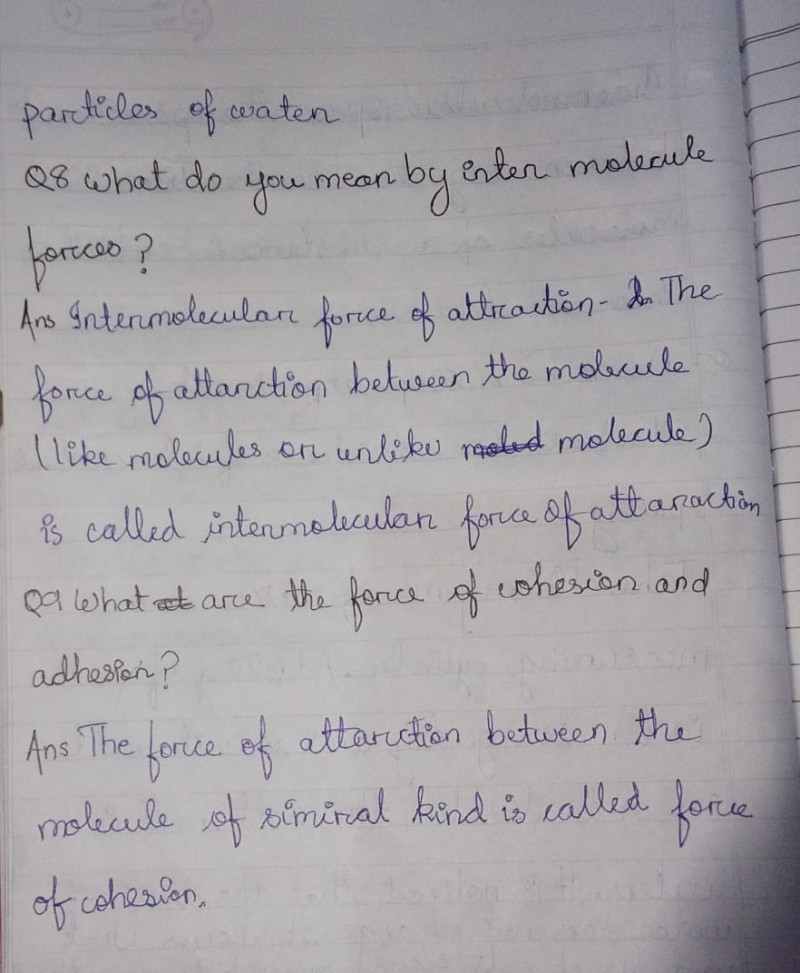 particles of water
Q8 What do you mean by inter molecule
forces?
Ans Intermolecular force of attraction- The
force of attarction between the molecule
(like molecules or unlike molecule)
is called intermolecular force of attaraction
Q9 What are the force of cohesion and
adhesion?
Ans The force of attarction between the
molecule of simiral kind is called force
of cohesion.